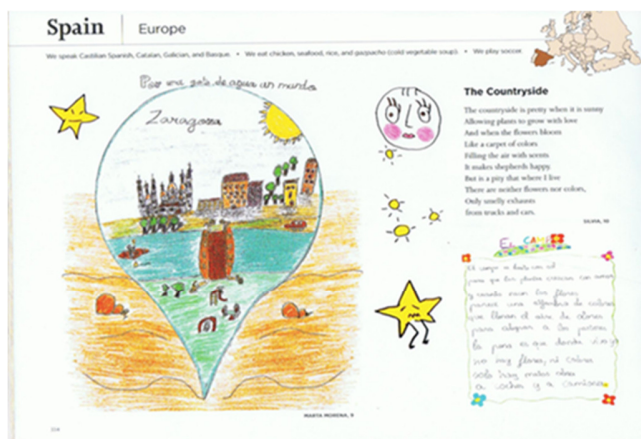 Spain
Europe
We speak Castilian Spanish, Catalan, Galician, and Basque. • We eat chicken, seafood, rice, and gazpacho (cold vegetable soup). • We play soccer.
Por una gota de agua un mundo
Zaragoza
The Countryside
The countryside is pretty when it is sunny
Allowing plants to grow with love
And when the flowers bloom
Like a carpet of colors
Filling the air with scents
It makes shepherds happy.
But is a pity that where I live
There are neither flowers nor colors,
Only smelly exhausts
from trucks and cars.
SILVIA, 10
EL CAMPO
para que las plantas crezcan con amor
y cuando nacen las flores
parece una alfombra de colores
que llenan el aire de olores
para alegrar a los pastores
la pena es que donde vivo yo
no hay flores, ni colores
solo hay malos olores
a coches y a camiones.
MARTA MORENA, 9